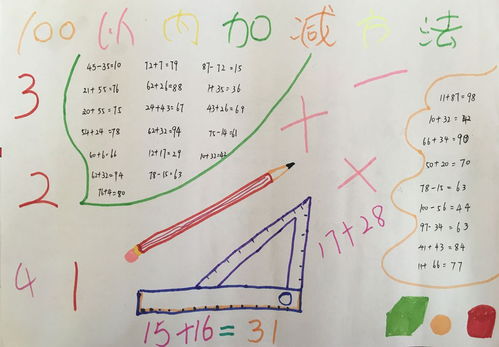 100以内加减方法
3
2
4 1
45-35=10 72+7=79 87-72=15
21+55=76 62+26=88 1+35=36
20+55=75 24+43=67 43+26=69
54+24=78 62+32=94 75-14=61
60+6=66 12+17=29 10+32=42
62+32=94 78-15=63
76+4=80
+ -
×
11+87=98
10+32=42
66+34=90
50+20=70
78-15=63
100-56=44
97-34=63
41+43=84
11+66=77
17+28
15+16=31